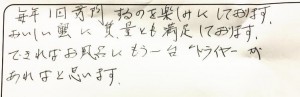 毎年1回 訪問するのを楽しみにしております。
おいしい蟹に質量とも満足しております。
できればお風呂にもう一台 ドライヤーが
あればと思います。